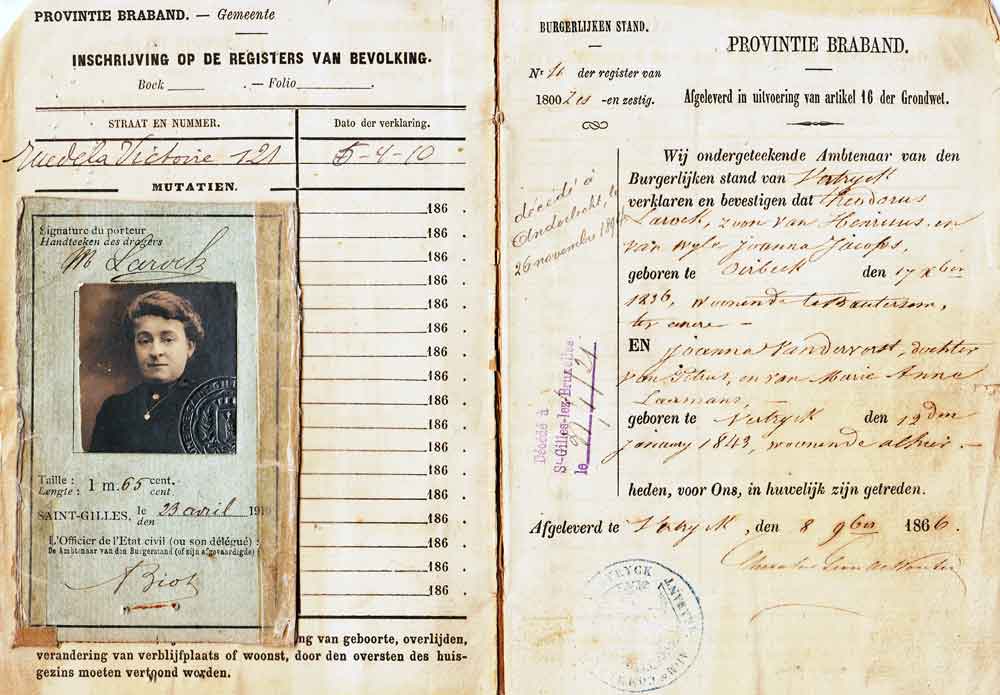 PROVINTIE BRABAND. — Gemeente
INSCHRIJVING OP DE REGISTERS VAN BEVOLKING.
Boek . — Folio .
STRAAT EN NUMMER.
Dato der verklaring.
rue de la Victoire 121
5-4-10
MUTATIEN.
186 .
186 .
186 .
186 .
186 .
186 .
186 .
186 .
186 .
186 .
186 .
186 .
186 .
186 .
186 .
186 .
186 .
Signature du porteur
Handteeken des dragers
M Larock
Taille : 1 m. 65 cent.
Lengte : cent.
SAINT-GILLES, le 23 avril 191
den
L'Officier de l'Etat civil (ou son délégué) :
De Ambtenaar van den Burgerstand (of zijn afgevaardigde)
N Biot
ng van geboorte, overlijden,
verandering van verblijfplaats of woonst, door den oversten des huis-
gezins moeten vertoond worden.
BURGERLIJKEN STAND.
Nr 11 der register van
1800 zes -en zestig.
décédé à
Anderlecht, le
26 novembre 189
Décédé à
St-Gilles-lez-Bruxelles
le /21
PROVINTIE BRABAND.
Afgeleverd in uitvoering van artikel 16 der Grondwet.
Wij ondergeteekende Ambtenaar van den
Burgerlijken stand van Vertryck
verklaren en bevestigen dat Theodorus
Larock, zoon van Henricus en
van wyle Joanna Jacobs,
geboren te Oirbeek den 17 Xber
1836, woonende te Bautersem,
ter eenre —
EN Joanna Vandervorst, dochter
van Petrus, en van Marie Anna
Laermans,
geboren te Vertryck den 12 den
January 1843, woonende alhier —
heden, voor Ons, in huwelijk zijn getreden.
Afgeleverd te Vertryck, den 8 9ber 1866.